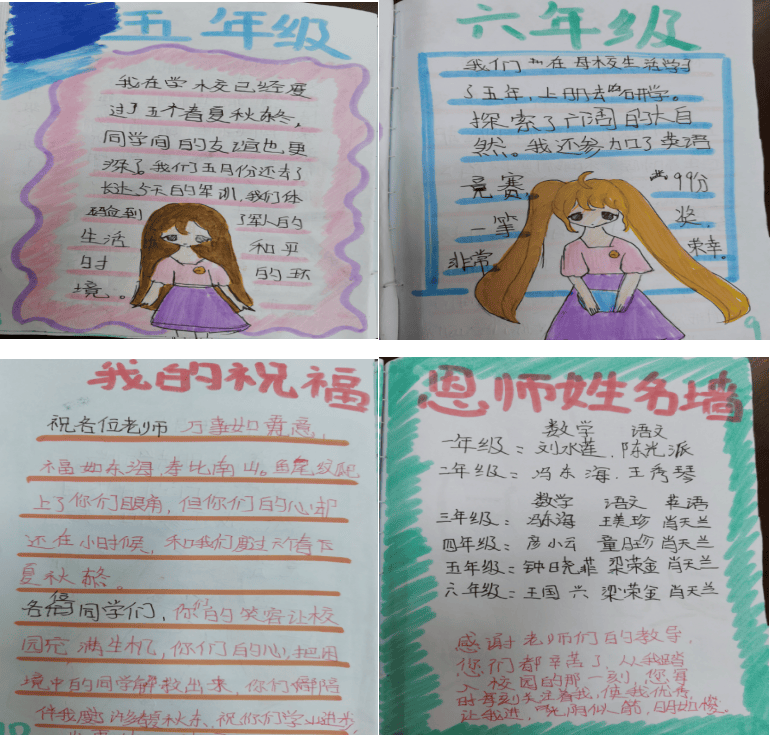 五年级
我在学校已经度
过了五个春夏秋冬,
同学间的友谊也更
深了。我们五月份还去了
长达5天的军训,我们体
验到了军人的
生活和平
时的环
境。
六年级
我们在母校生活学了
了五年,上明去研学。
探索了广阔的大自
然。我还参加了英语
竞赛,99分
一等奖.
非常荣幸.
9
我的祝福
祝各位老师万事如意,
福如东海,寿比南山。鱼尾纹爬
上了你们眼角,但你们的心却
还在小时候,和我们度过六个春
夏秋冬。
各位同学们,你们的笑容让校
园充满生机,你们的心,把困
境中的同学解救出来,你们都陪
伴我度春夏秋冬,祝你们学业进步
恩师姓名墙
数学 语文
一年级:刘水莲.陈光派
二年级:冯东海.王秀琴
数学 语文 英语
三年级:冯东海 王美珍 肖天兰
四年级:彦小云 童月珍 肖天兰
五年级:钟日尧 梁荣金 肖天兰
六年级:王国兴 梁荣金 肖天兰
感谢老师们的教导,
您们都辛苦了,从我踏
入校园的那一刻,您每
时每刻关注着我,使我优秀
让我进